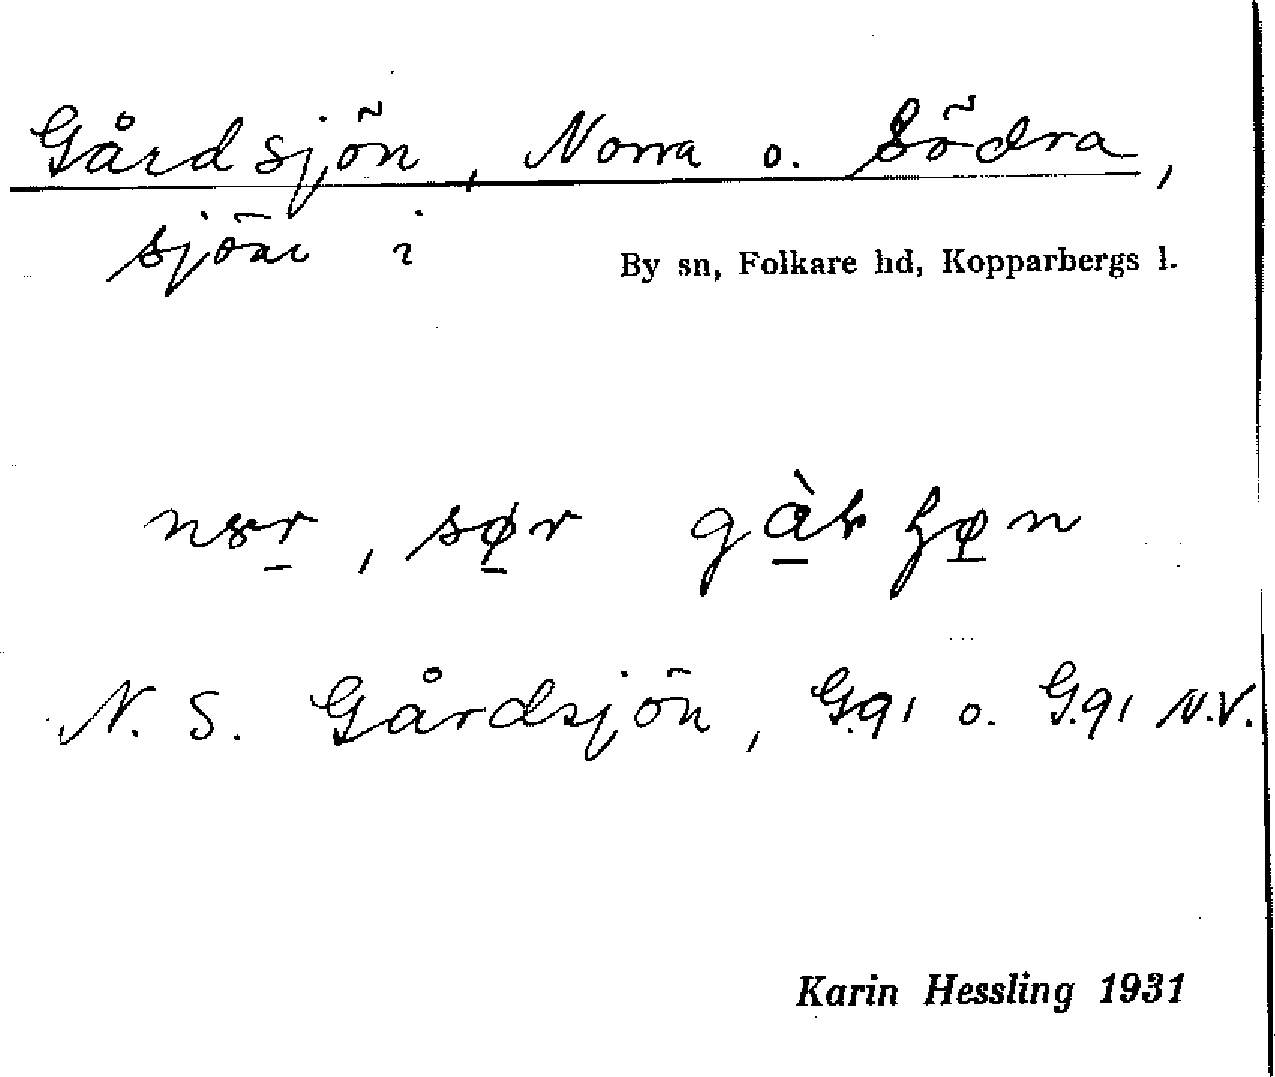 Gårdsjön, Norra o. Södra,
sjöar i
By sn, Folkare hd, Kopparbergs l.
, sør
N. S. Gårdsjön, G.91 o. G.91 N.V.
Karin Hessling 1931